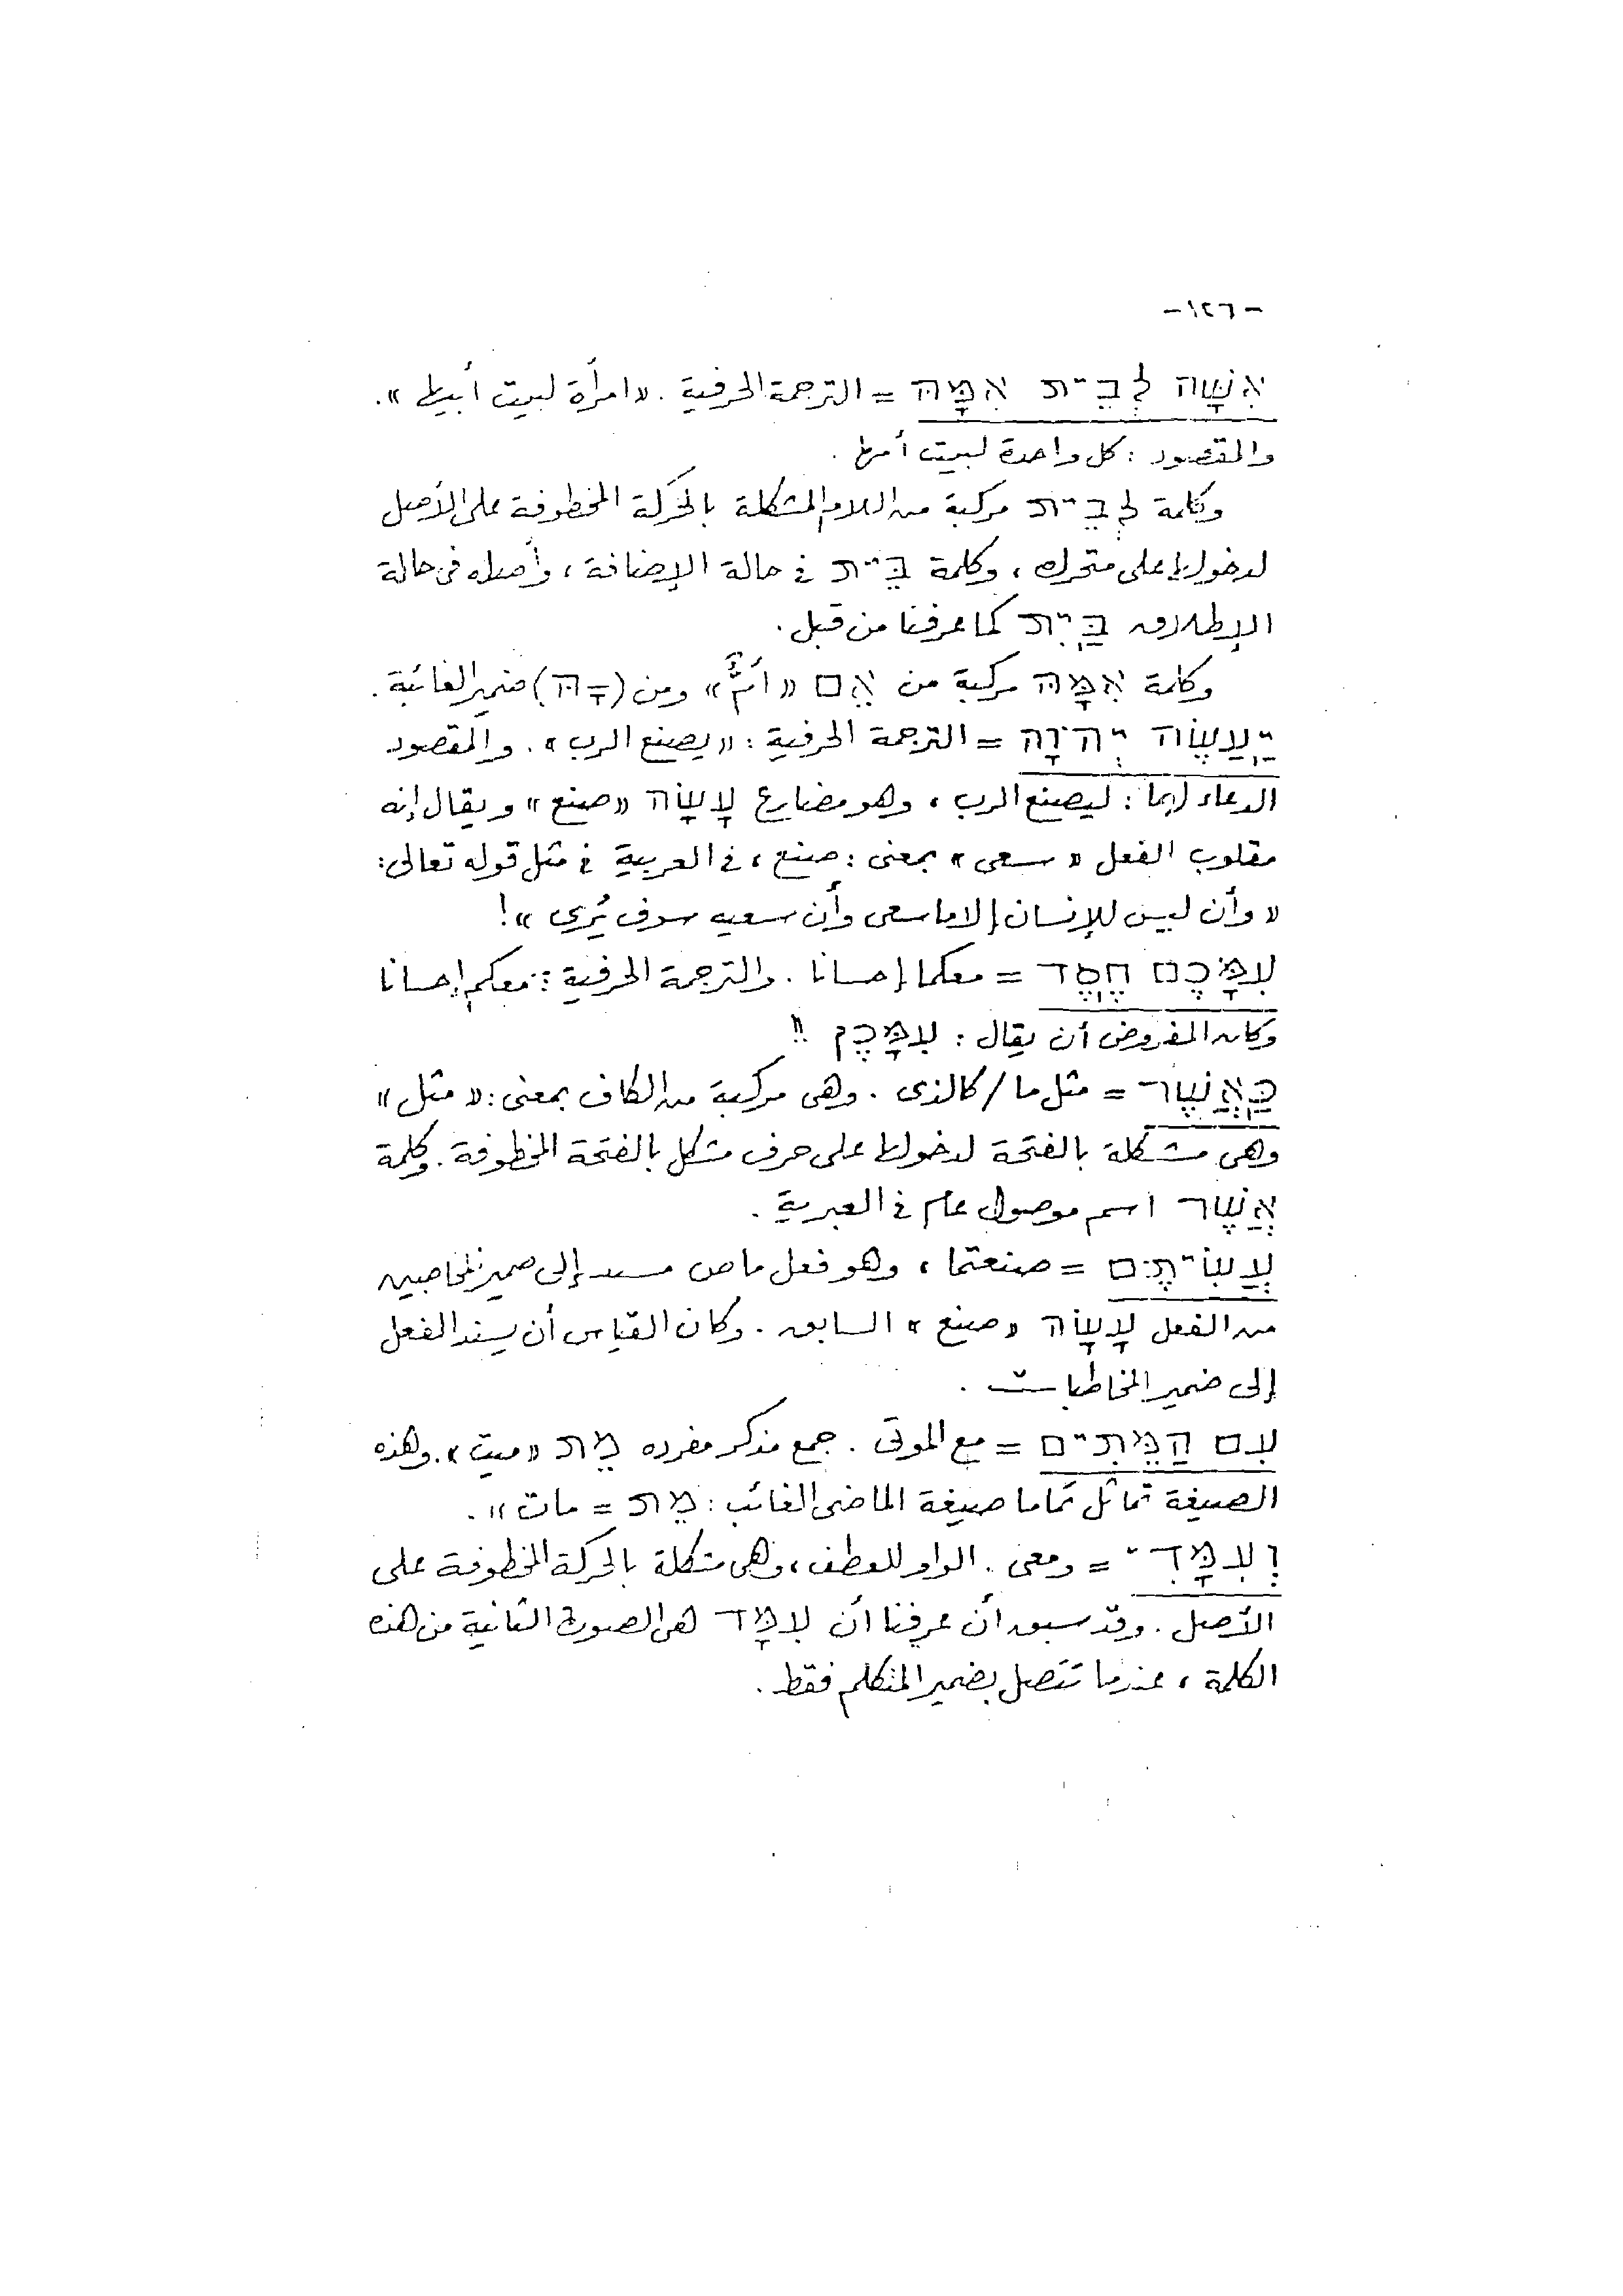 -١٢٦-
אִשָּׁה לְבֵית אִמָּהּ = الترجمة الحرفية . «امرأة لبيت أبيها» .
والمقصود : كل واحدة لبيت أمها .
وكلمة לְבֵית مركبة من اللام المشكلة بالحركة المخطوفة على الأصل
لدخولها على متحرك ، وكلمة בֵּית في حالة الإضافة ، وأصله في حالة
الإطلاق בַּיִת كما عرفنا من قبل .
وكلمة אִמָּהּ مركبة من אֵם «أمٌّ» ومن (ָהּ) ضمير الغائبة .
יַעֲשֶׂה יְהוָֹה = الترجمة الحرفية : «يصنع الرب» . والمقصود
الدعاء لهما : ليصنع الرب ، وهو مضارع עָשָׂה «صنع» ويقال إنه
مقلوب الفعل «سعى» بمعنى : صنع ، في العربية في مثل قوله تعالى :
«وأن ليس للإنسان إلا ما سعى وأن سعيه سوف يُرى» !
עִמָּכֶם חֶסֶד = معكما إحسانا . والترجمة الحرفية : معكم إحسانا
وكان المفروض أن يقال : עִמָּכֶן !!
כַּאֲשֶׁר = مثل ما / كالذى . وهى مركبة من الكاف بمعنى : «مثل»
وهى مشكلة بالفتحة لدخولها على حرف مشكل بالفتحة المخطوفة . وكلمة
אֲשֶׁר اسم موصول عام في العبرية .
עֲשִׂיתֶם = صنعتما ، وهو فعل ماض مسند إلى ضمير المخاطبين
من الفعل עָשָׂה «صنع» السابق . وكان القياس أن يسند الفعل
إلى ضمير المخاطبات .
עִם הַמֵּתִים = مع الموتى . جمع مذكر مفرده מֵת «ميت» . وهذه
الصيغة تماثل تماما صيغة الماضى الغائب : מֵת = مات» .
וְעִמָּדִי = ومعى . الواو للعطف ، وهى مشكلة بالحركة المخطوفة على
الأصل . وقد سبق أن عرفنا أن עִמָּד هى الصورة الثانية من هذه
الكلمة ، عندما تتصل بضمير المتكلم فقط .